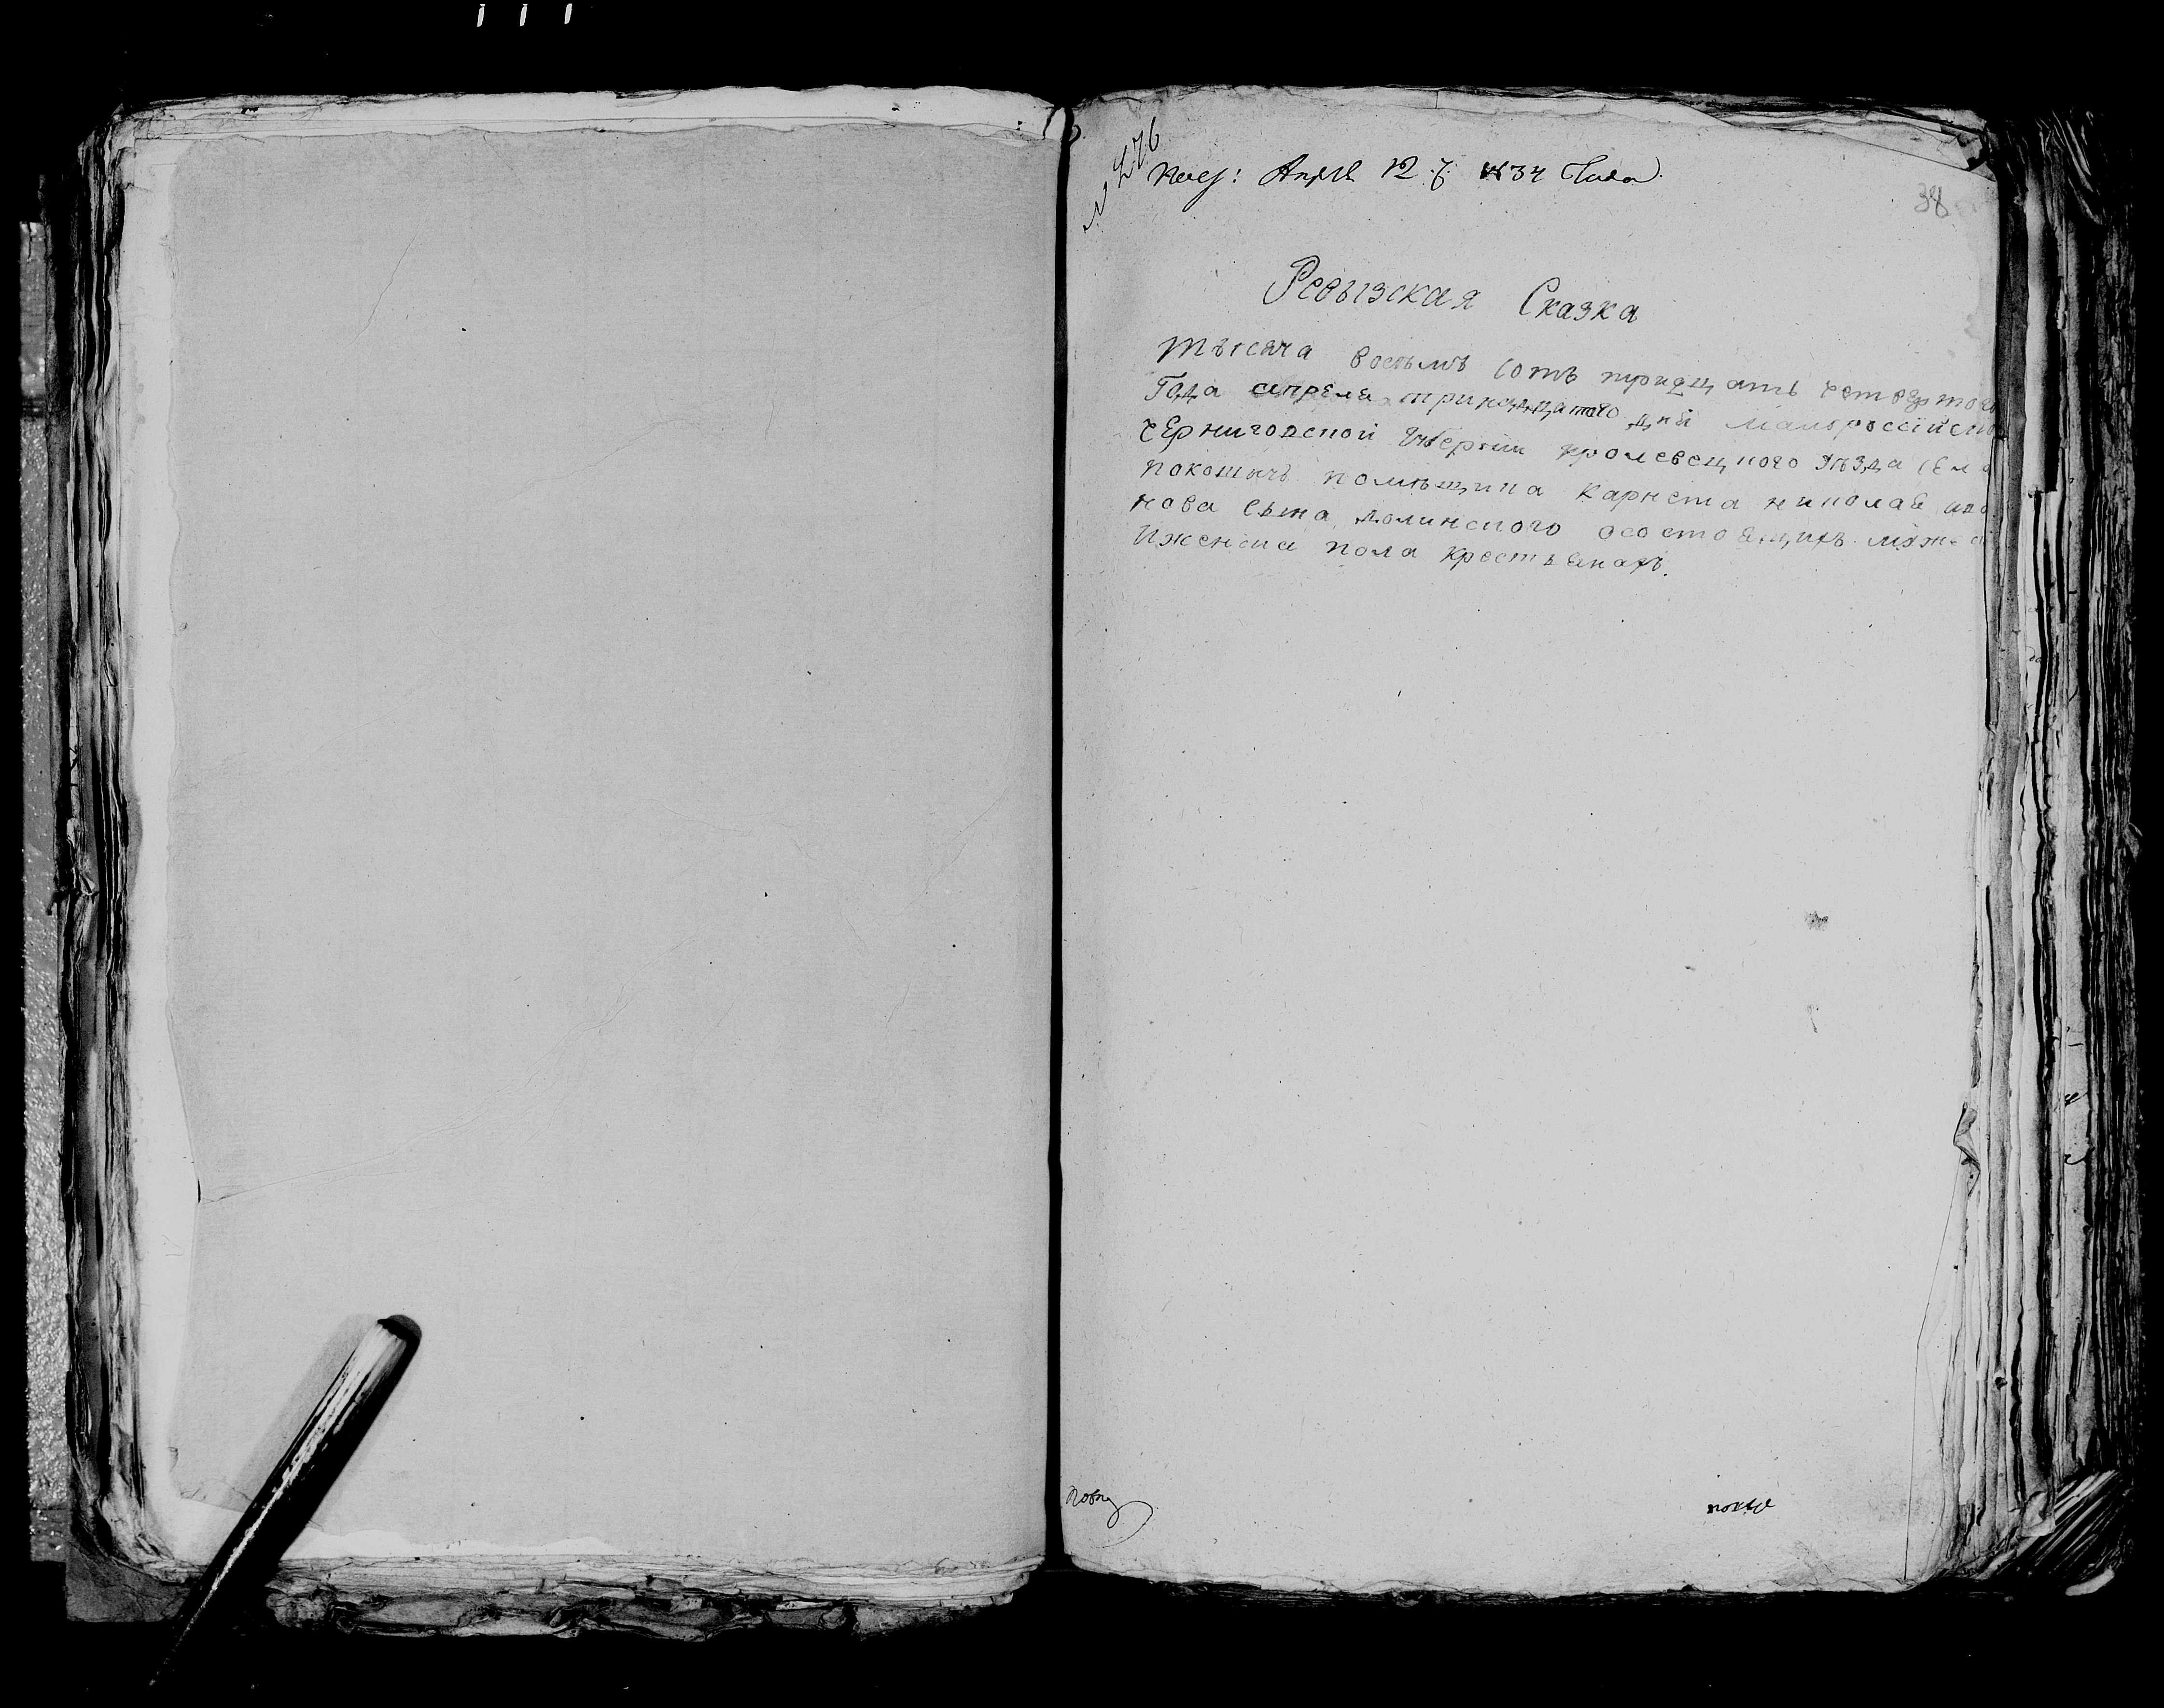 № 276
Апреля 12 1834 Года
38
Ревызская Сказка
тысяча восьмъ сотъ тридцать четвертого
Года апреля тринадцатого дня Малороссійской
Черниговской Губерніи кролевецкого уѣзда села
покошичъ помѣщика Карнета николая
нова сына долинского осостоящихъ мужска
Иженска пола крестьянахъ.